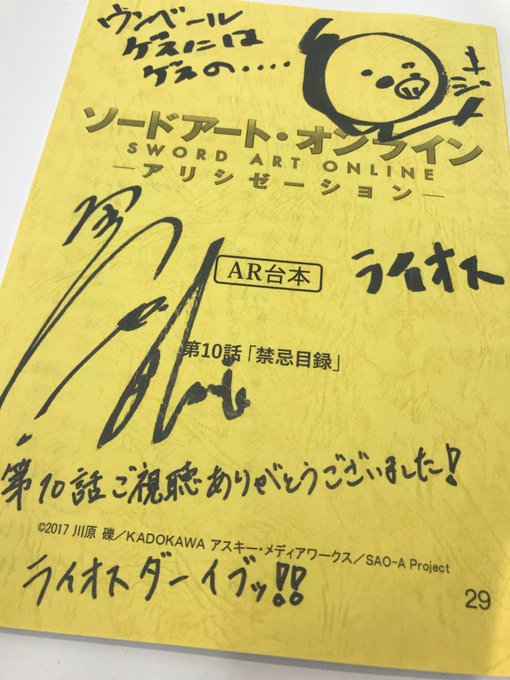 ウンベール
ゲスには
ゲスの....
ソードアート・オンライン
SWORD ART ONLINE
―アリシゼーション―
AR台本
ライオス
第10話「禁忌目録」
第10話ご視聴ありがとうございました!
©2017 川原 礫／KADOKAWA アスキー・メディアワークス／SAO-A Project
ライオスダーイブッ!!
29